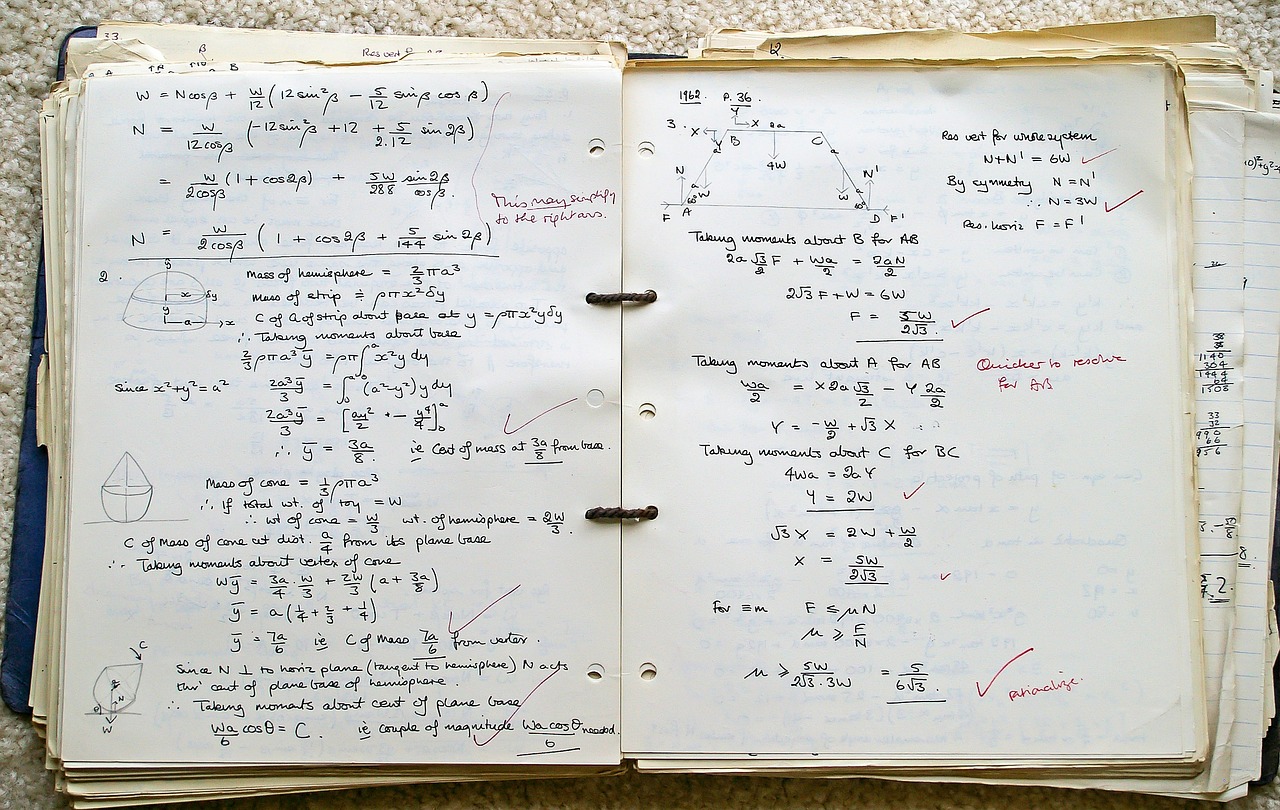 33.
β
Res vert
A
B
W = Ncosβ + W/12 (12sin²β − 5/12 sinβ cosβ)
N = W/12cosβ (−12sin²β + 12 + 5/2.12 sin2β)
= W/2cosβ (1 + cos2β) + 5W/288 sin2β/cosβ.
This may simplify
to the right ans.
N = W/2cosβ (1 + cos2β + 5/144 sin2β)
2.
y
x
δy
y
a
x
Mass of hemisphere = 2/3 πa³
Mass of strip ≑ ρπx²δy
C of G of strip about base at y = ρπx²yδy
∴ Taking moments about base
2/3 ρπa³ȳ = ρπ∫₀ᵃ x²y dy
Since x²+y²=a²
2a³ȳ/3 = ∫₀ᵃ (a²−y²)y dy
2a³ȳ/3 = [ay²/2 − y⁴/4]₀ᵃ
∴ ȳ = 3a/8 ie Cent of mass at 3a/8 from base.
Mass of cone = 1/3 ρπa³
∴ If total wt. of toy = W
∴ wt of cone = W/3 wt. of hemisphere = 2W/3.
C of Mass of cone at dist. a/4 from its plane base
∴ Taking moments about vertex of cone
Wȳ = 3a/4 . W/3 + 2W/3 (a + 3a/8)
ȳ = a(1/4 + 2/3 + 1/4)
ȳ = 7a/6 ie C of Mass 7a/6 from vertex.
C
N
θ
W
Since N ⊥ to horiz plane (tangent to hemisphere) N acts
thro' cent of plane base of hemisphere.
∴ Taking moments about cent of plane base
Wa/6 cosθ = C. ie couple of magnitude Wa cosθ/6 needed.
12.
1962. P.36.
3.
Y
X
2a
X
B
C
Y
a
a
4W
N
N'
a
a
W
W
60°
60°
F
A
D
F'
Res vert for whole system
N+N' = 6W
By symmetry N = N'
∴ N = 3W
Res. horiz F = F'
Taking moments about B for AB
2a √3/2 F + Wa/2 = 2aN/2
2√3 F + W = 6W
F = 5W/2√3.
Taking moments about A for AB
Quicker to resolve
for AB
Wa/2 = X 2a √3/2 − Y 2a/2
Y = −W/2 + √3 X
Taking moments about C for BC
4Wa = 2aY
Y = 2W
√3 X = 2W + W/2
X = 5W/2√3
For ≡m F ≤ μN
μ ≥ F/N
μ ≥ 5W/2√3.3W = 5/6√3.
rationalize.
38
38
1140
304
1444
64
1508
33
32
990
66
956